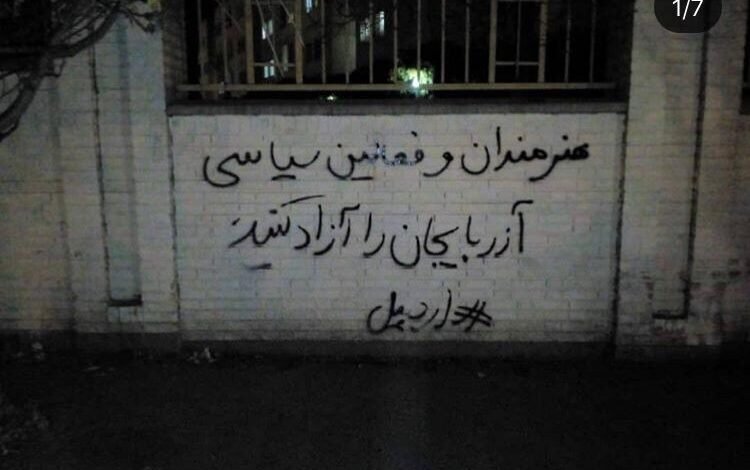 1/7
هنرمندان و فعالین سیاسی
آزربایجان را آزاد کنید
#اردبیل